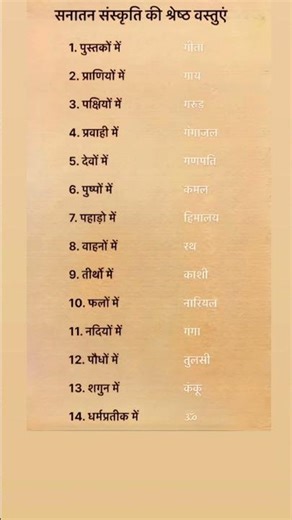 सनातन संस्कृति की श्रेष्ठ वस्तुएं
1. पुस्तकों में गीता
2. प्राणियों में गाय
3. पक्षियों में गरुड
4. प्रवाही में गंगाजल
5. देवों में गणपति
6. पुष्पों में कमल
7. पहाड़ो में हिमालय
8. वाहनों में रथ
9. तीर्थो में काशी
10. फलों में नारियल
11. नदियों में गंगा
12. पौधों में तुलसी
13. शगुन में कंकू
14. धर्मप्रतीक में ॐ